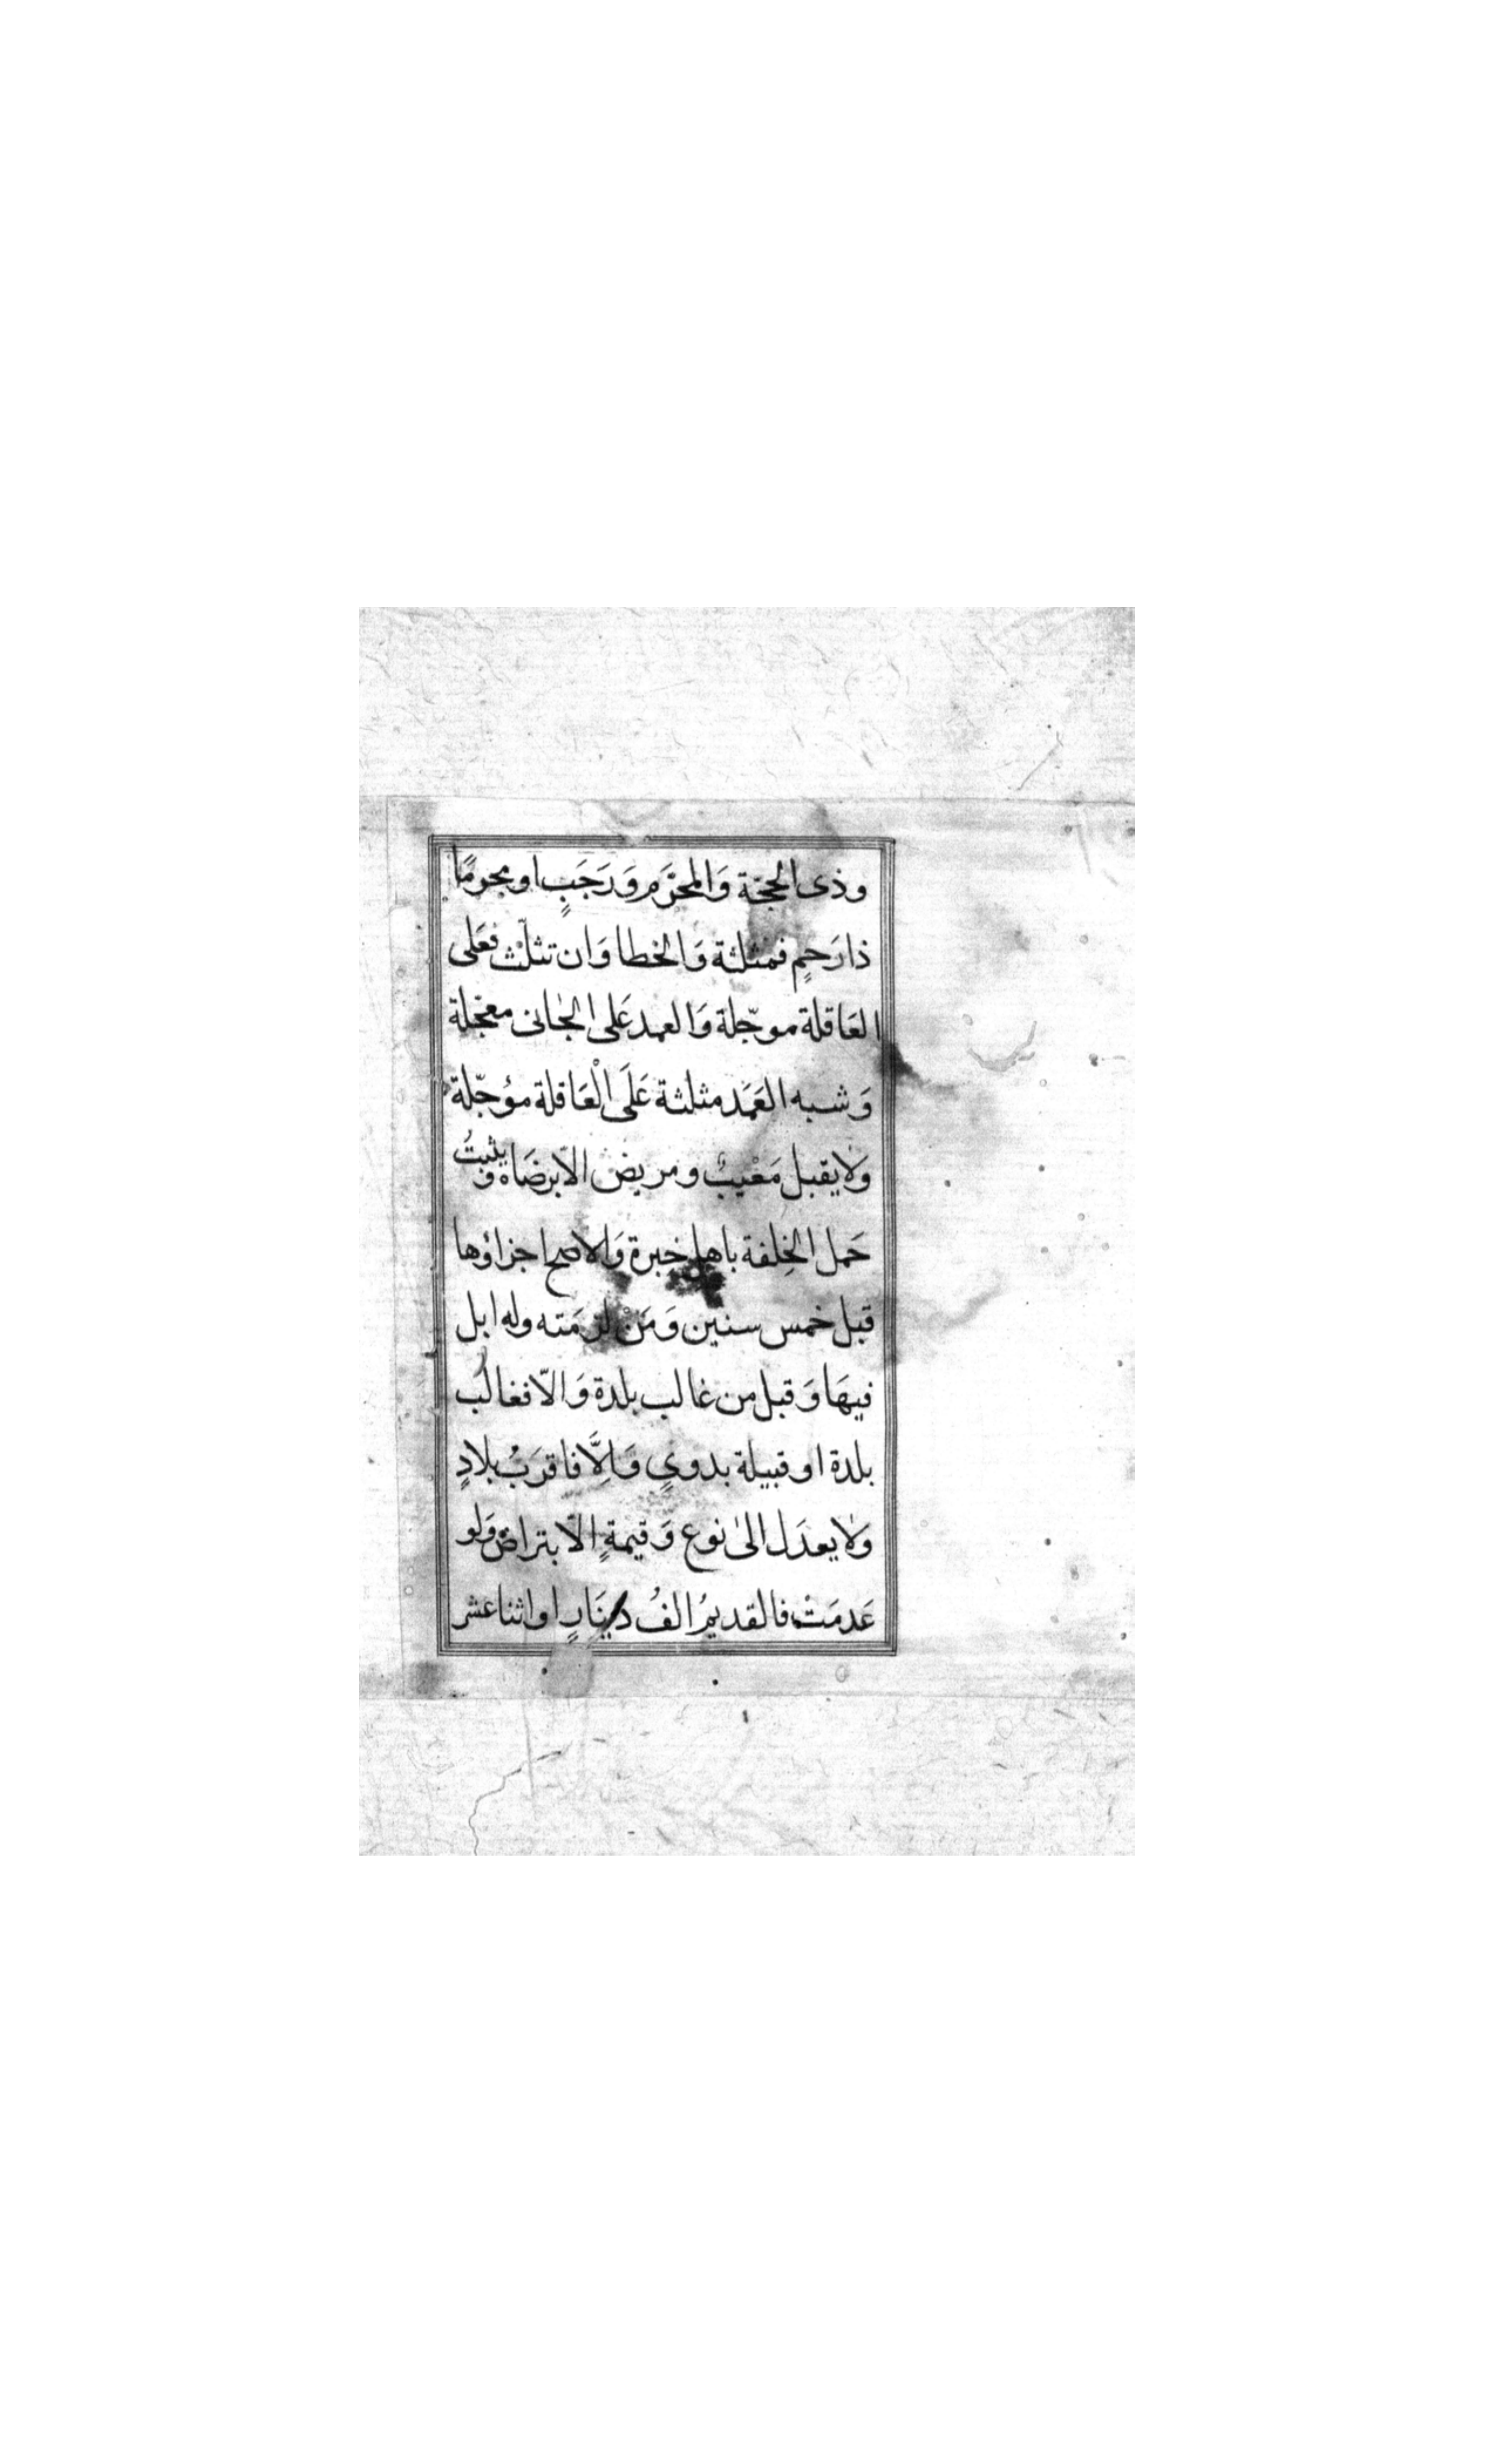 وذى الحجّة وَالمحرّم وَرَجَبٍ او محرمًا
ذا رَحِمٍ فمثلثة وَالخطا وَان تثلّث فعَلى
العَاقلة موجّلة وَالعمد عَلى الجانى معجّلة
وَشبه العَمَد مثلثة عَلَى الْعَاقلة مؤجّلة
وَلا يقبل مَعْيبٌ ومريض الّا برضَاه وَيثبتُ
حَمل الخِلفة باهل خِبرة وَالاصح اجزاؤها
قبل خمس سنين وَمَنْ لزمَته وله ابل
فيهَا وَقبل من غالب بلدة وَالّا فغالبُ
بلدة او قبيلة بدويٍ وَاِلَّا فاقرَبُ بلادٍ
وَلا يعدَل الىٰ نوع وَقيمةٍ الّا بتراض وَلو
عَدمَتْ فالقديمُ الفُ دينَارٍ او اثنا عشر